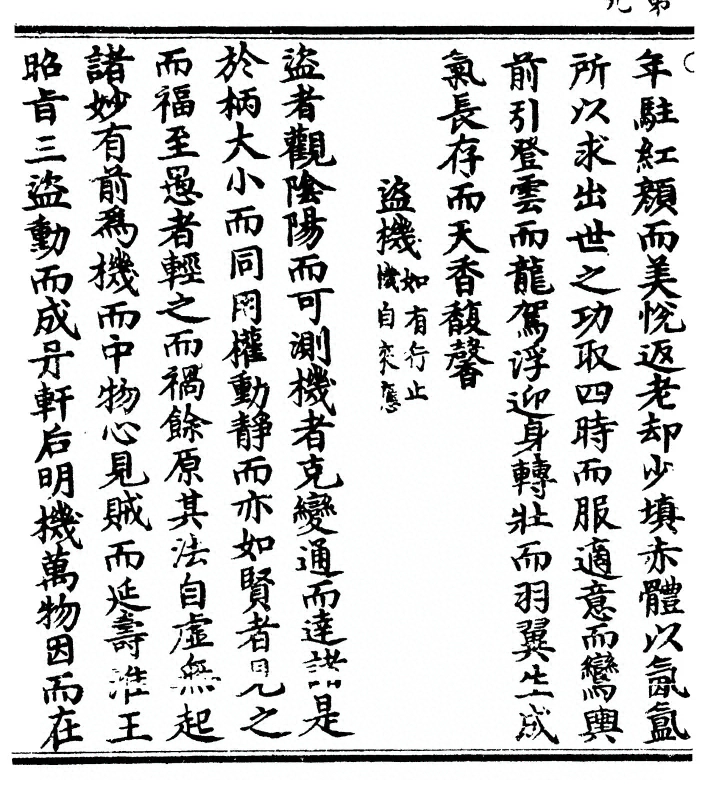 第九
年駐紅顔而美悅返老却少填赤體以氤氳
所以求出世之功取四時而服適意而鸞輿
前引登雲而龍駕浮迎身轉壯而羽翼生咸
氣長存而天香馥馨
盜機如有行止
機自來應
盜者觀陰陽而可測機者克變通而達諸是
於柄大小而同用權動靜而亦如賢者見之
而福至愚者輕之而禍餘原其法自虛無起
諸妙有前爲機而中物心見賊而延壽淮王
昭旨三盜動而成丹軒后明機萬物因而在